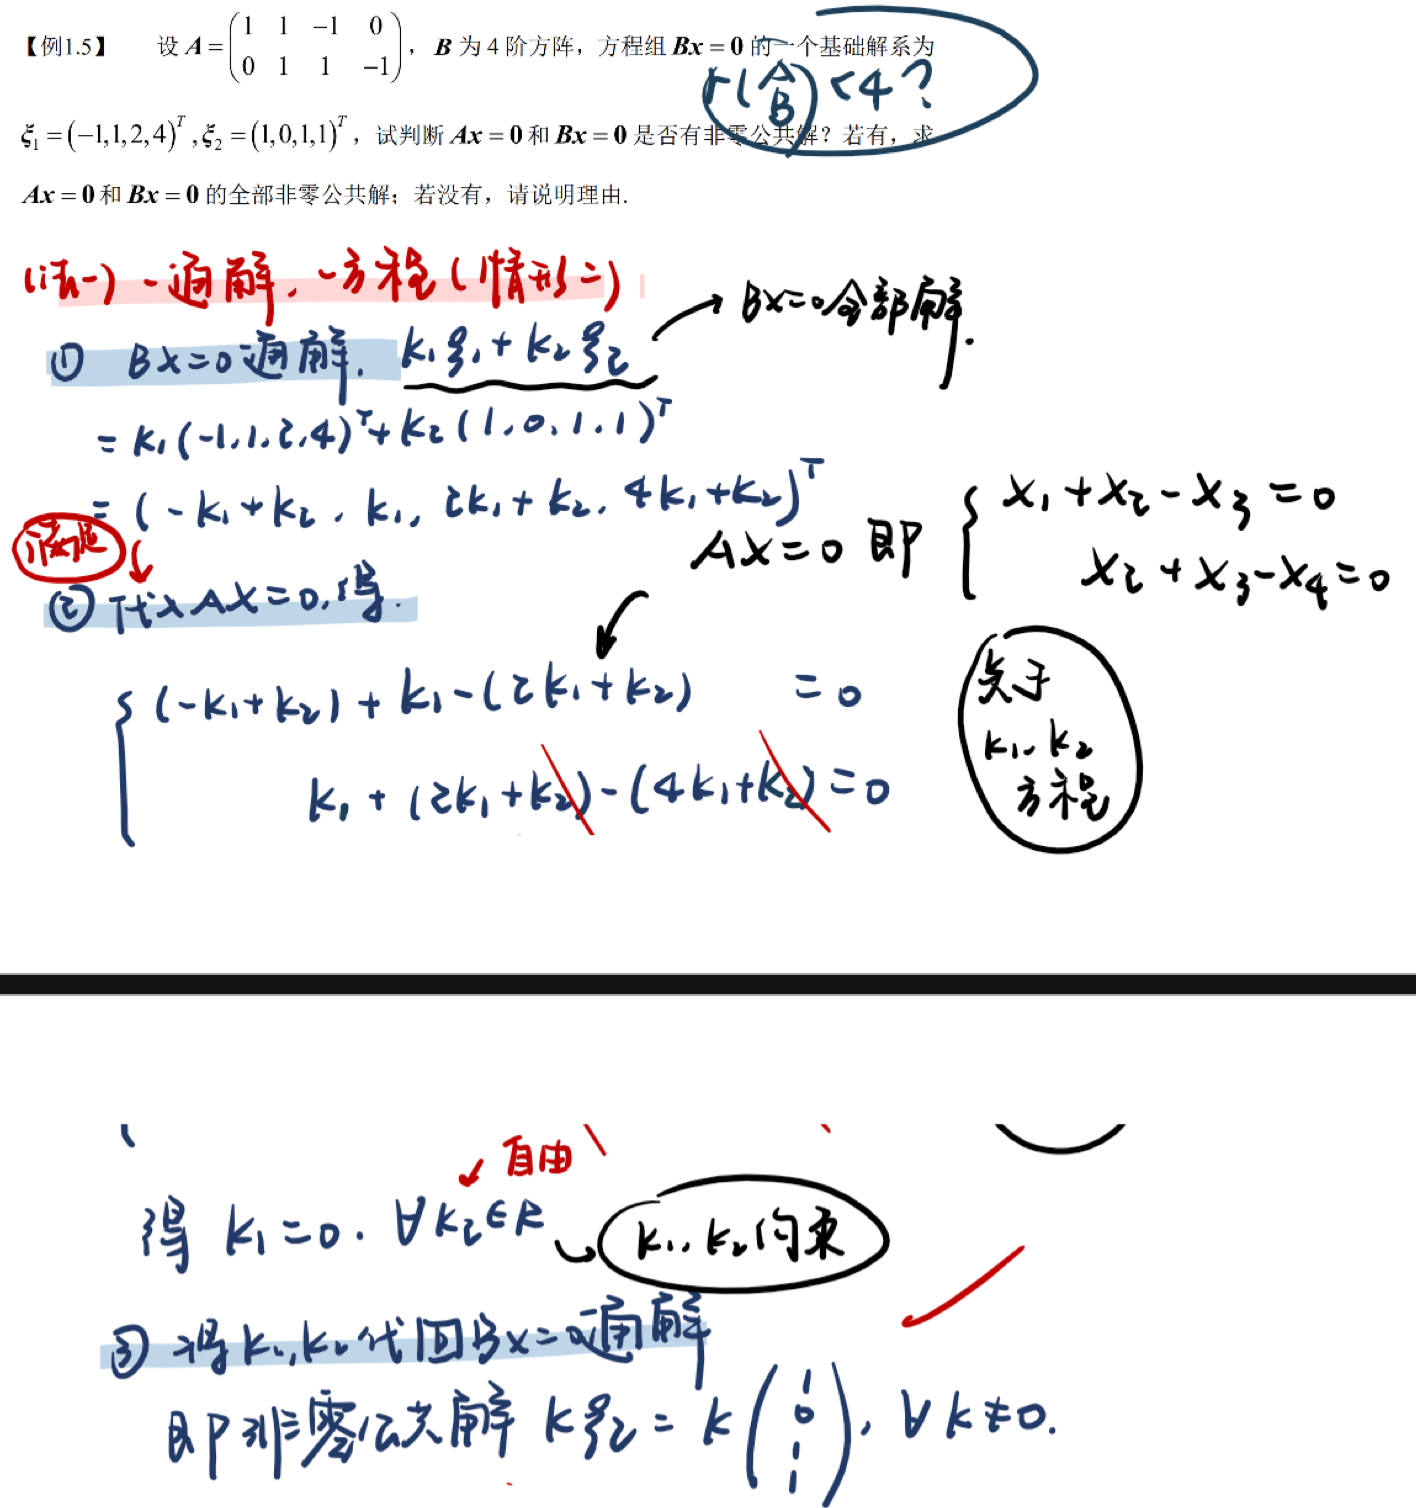 【例1.5】 设 A = (1 1 −1 0; 0 1 1 −1), B 为 4 阶方阵, 方程组 Bx = 0 的一个基础解系为
r(A B) < 4 ?
ξ₁ = (−1,1,2,4)ᵀ, ξ₂ = (1,0,1,1)ᵀ, 试判断 Ax = 0 和 Bx = 0 是否有非零公共解? 若有, 求
Ax = 0 和 Bx = 0 的全部非零公共解; 若没有, 请说明理由.
(法一) 一通解, 一方程 (情形二)
① Bx=0 通解. k₁ξ₁ + k₂ξ₂ → Bx=0 全部解.
= k₁(-1,1,2,4)ᵀ + k₂(1,0,1,1)ᵀ
= (-k₁+k₂, k₁, 2k₁+k₂, 4k₁+k₂)ᵀ
满足
Ax=0 即 { x₁+x₂-x₃=0
x₂+x₃-x₄=0
② 代入Ax=0,得.
{ (-k₁+k₂)+k₁-(2k₁+k₂) =0
k₁+(2k₁+k₂)-(4k₁+k₂)=0
关于
k₁,k₂
方程
自由
得 k₁=0. ∀k₂∈R → k₁,k₂约束
③ 将k₁,k₂代回Bx=0通解
即非零公共解 kξ₂ = k(1 0 1 1), ∀k≠0.